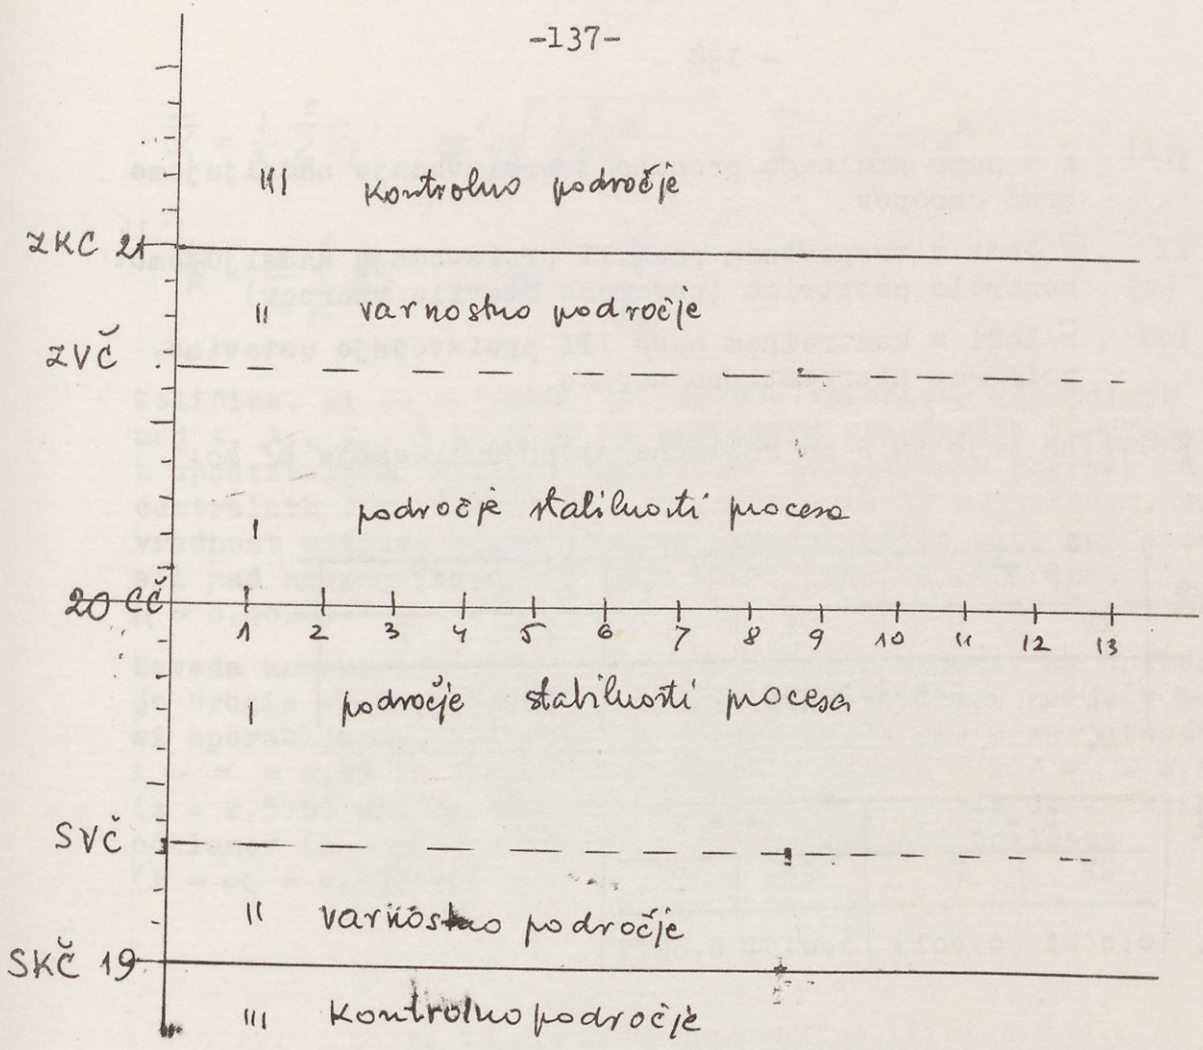 -137-
III kontrolno področje
ZKC 21
II varnostno področje
ZVČ
I področje stabilnosti procesa
20 CČ
1 2 3 4 5 6 7 8 9 10 11 12 13
I področje stabilnosti procesa
SVČ
II varnostno področje
SKČ 19
III kontrolno področje